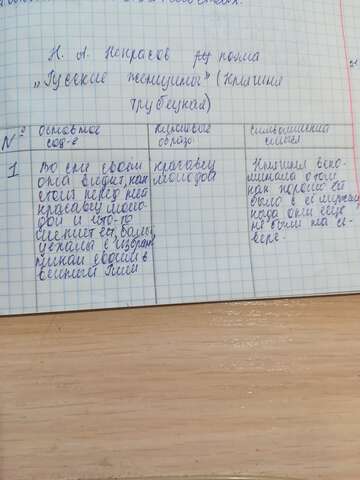 Н. А. Некрасов поэма
„Русские женщины" (Княгиня
Трубецкая)
№ Основное сод-е
Ключевые образы
Символический смысл
1
Во сне своем
она видит, как
стоит перед ней
красавец моло-
дой и что-то
шепчет ей, балы,
уехала с избран
ником своим в
вечный Рим
красавец
молодой
Княгиня вспо-
минала о том
как хорошо ей
было с её мужем
когда они ещё
не были на се-
вере.